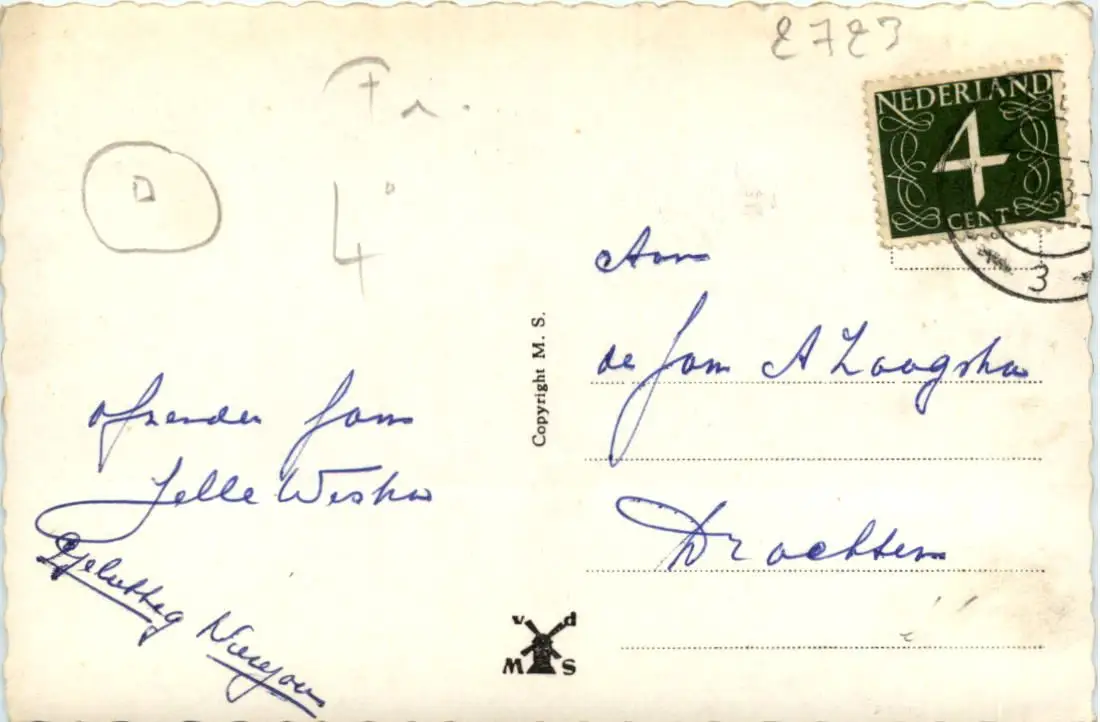 2723
Fr.
4°
NEDERLAND
4
CENT
3
Aan
de fam A Zaagsma
Drachten
Copyright M. S.
afzender fam
Jelle Westra
Gelukkig Nieuwjaar
v d
M S